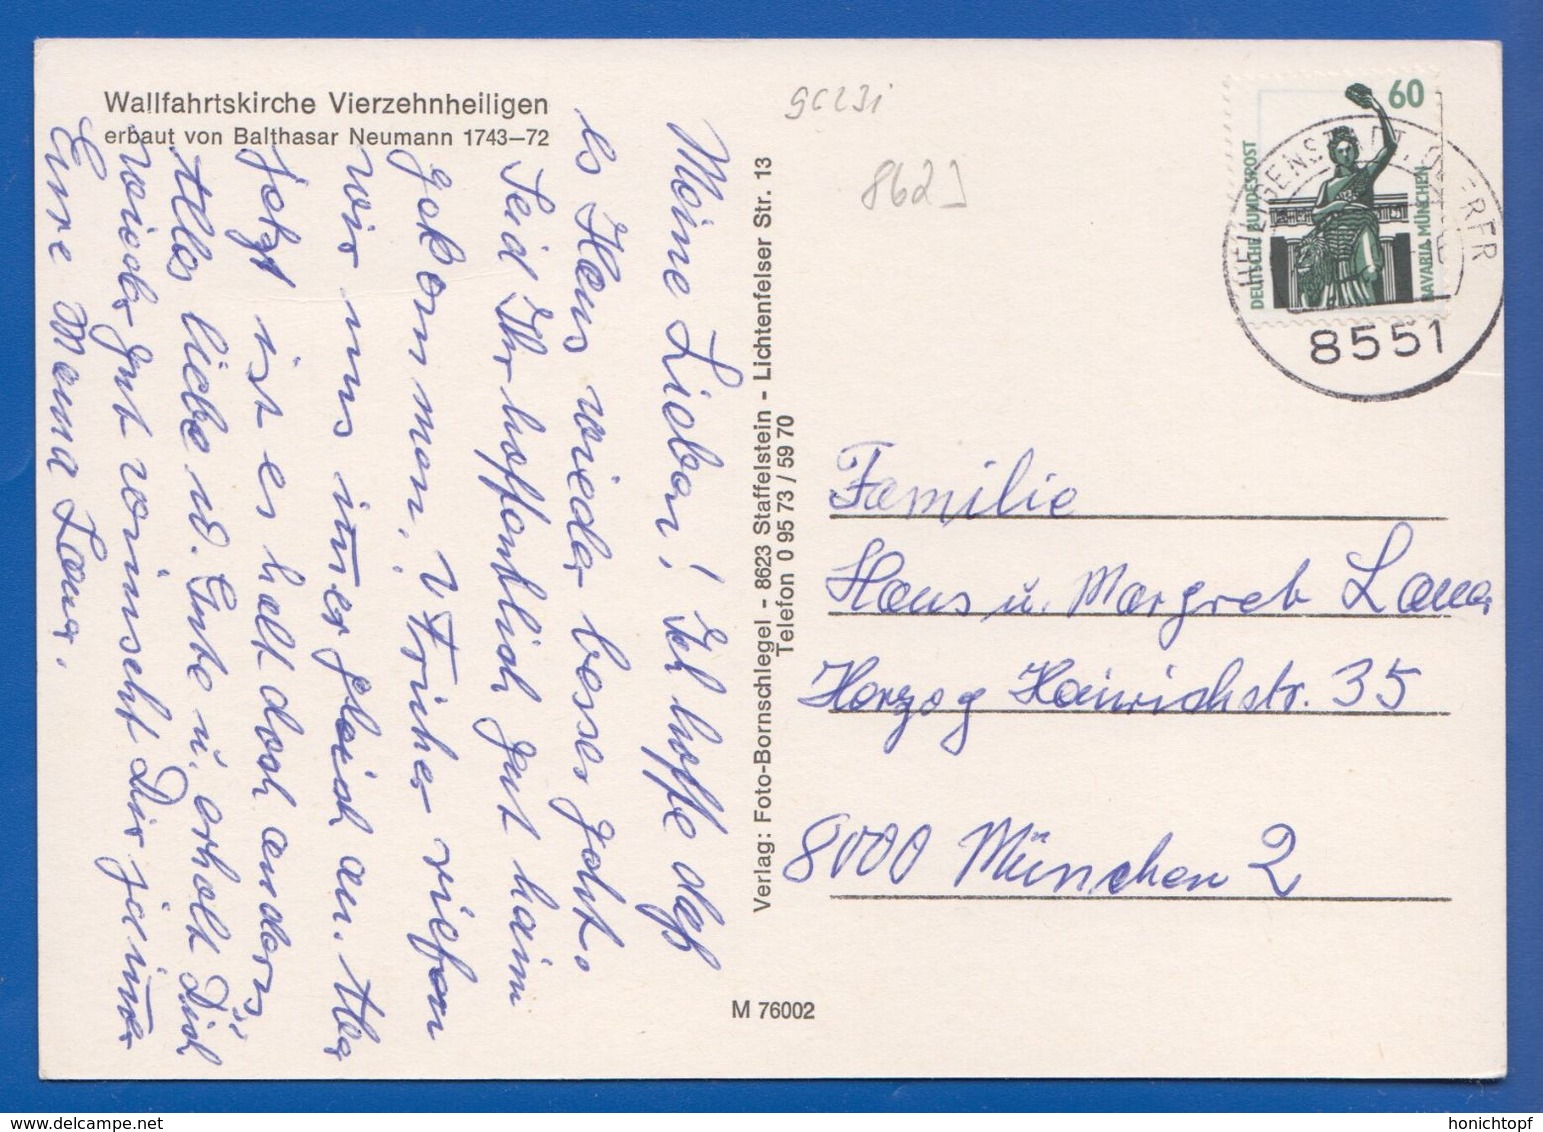 Wallfahrtskirche Vierzehnheiligen
erbaut von Balthasar Neumann 1743–72
Meine Lieben! Ich hoffe daß
es Hans wieder besser geht.
Seid Ihr hoffentlich gut heim
gekommen. Früher riefen
wir uns im̅er gleich an. Aber
jetzt ist es halt doch anders
Alles liebe u. Gute u. erholt Dich
wieder gut wünscht Dir im̅er
Eure Mama
Verlag: Foto-Bornschlegel - 8623 Staffelstein - Lichtenfelser Str. 13
Telefon 0 95 73 / 59 70
M 76002
8623
60
DEUTSCHE BUNDESPOST
BAVARIA MÜNCHEN
HEILIGENSTADT I. OBERFR
8551
Familie
Hans u. Margret
Herzog Heinrichstr. 35
8000 München 2
delcampe.net
honichtopf